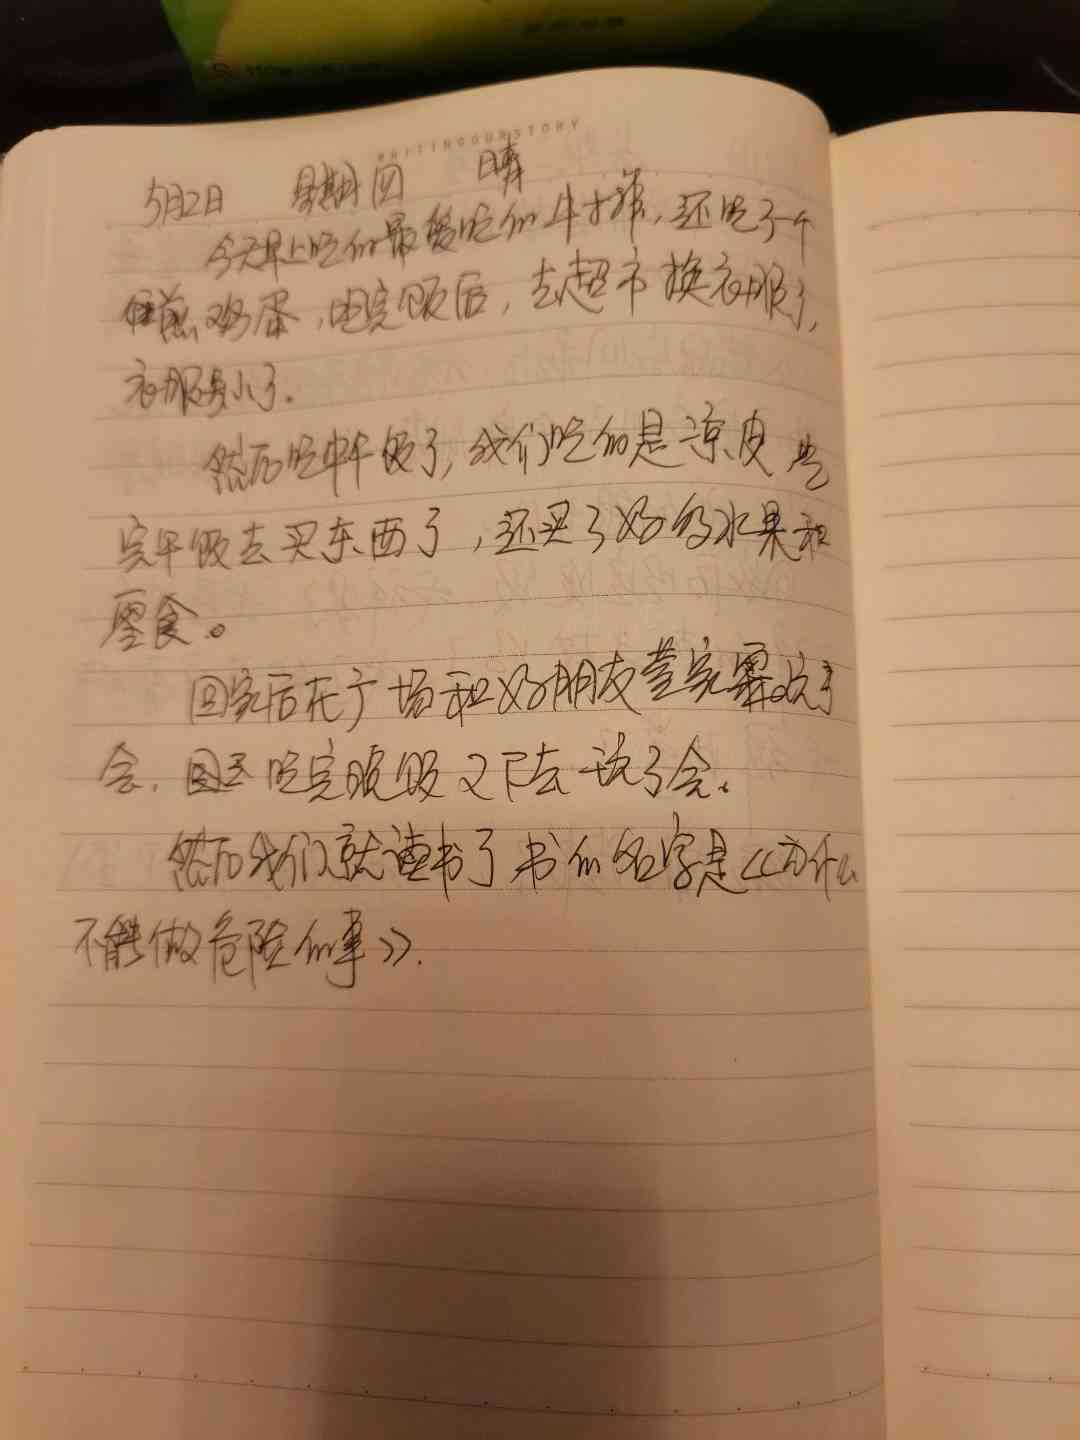 WRITINGOURSTORY
5月2日 星期四 晴
今天早上吃的最爱吃的牛排，还吃了一个
煎鸡蛋，吃完饭后，去超市换衣服了，
衣服小了.
然后吃中午饭了，我们吃的是凉皮 吃
完午饭去买东西了，还买了好多水果和
零食。
回家后在广场和好朋友 玩了
会，回去吃完晚饭又下去玩了会.
然后我们就读书了 书的名字是《为什么
不能做危险的事》.